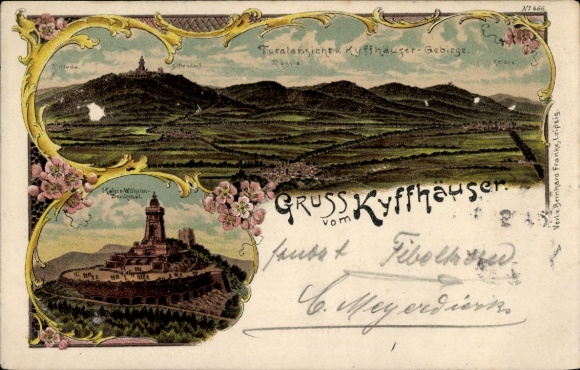 No 466.
Totalansicht v. Kyffhäuser-Gebirge.
Tilleda
Rossla
Kelbra
Kaiser Wilhelm-
Denkmal.
GRUSS
vom Kyffhäuser.
Verl. v. Bernhard Franke, Leipzig.
sendet
C. Meyerdierks